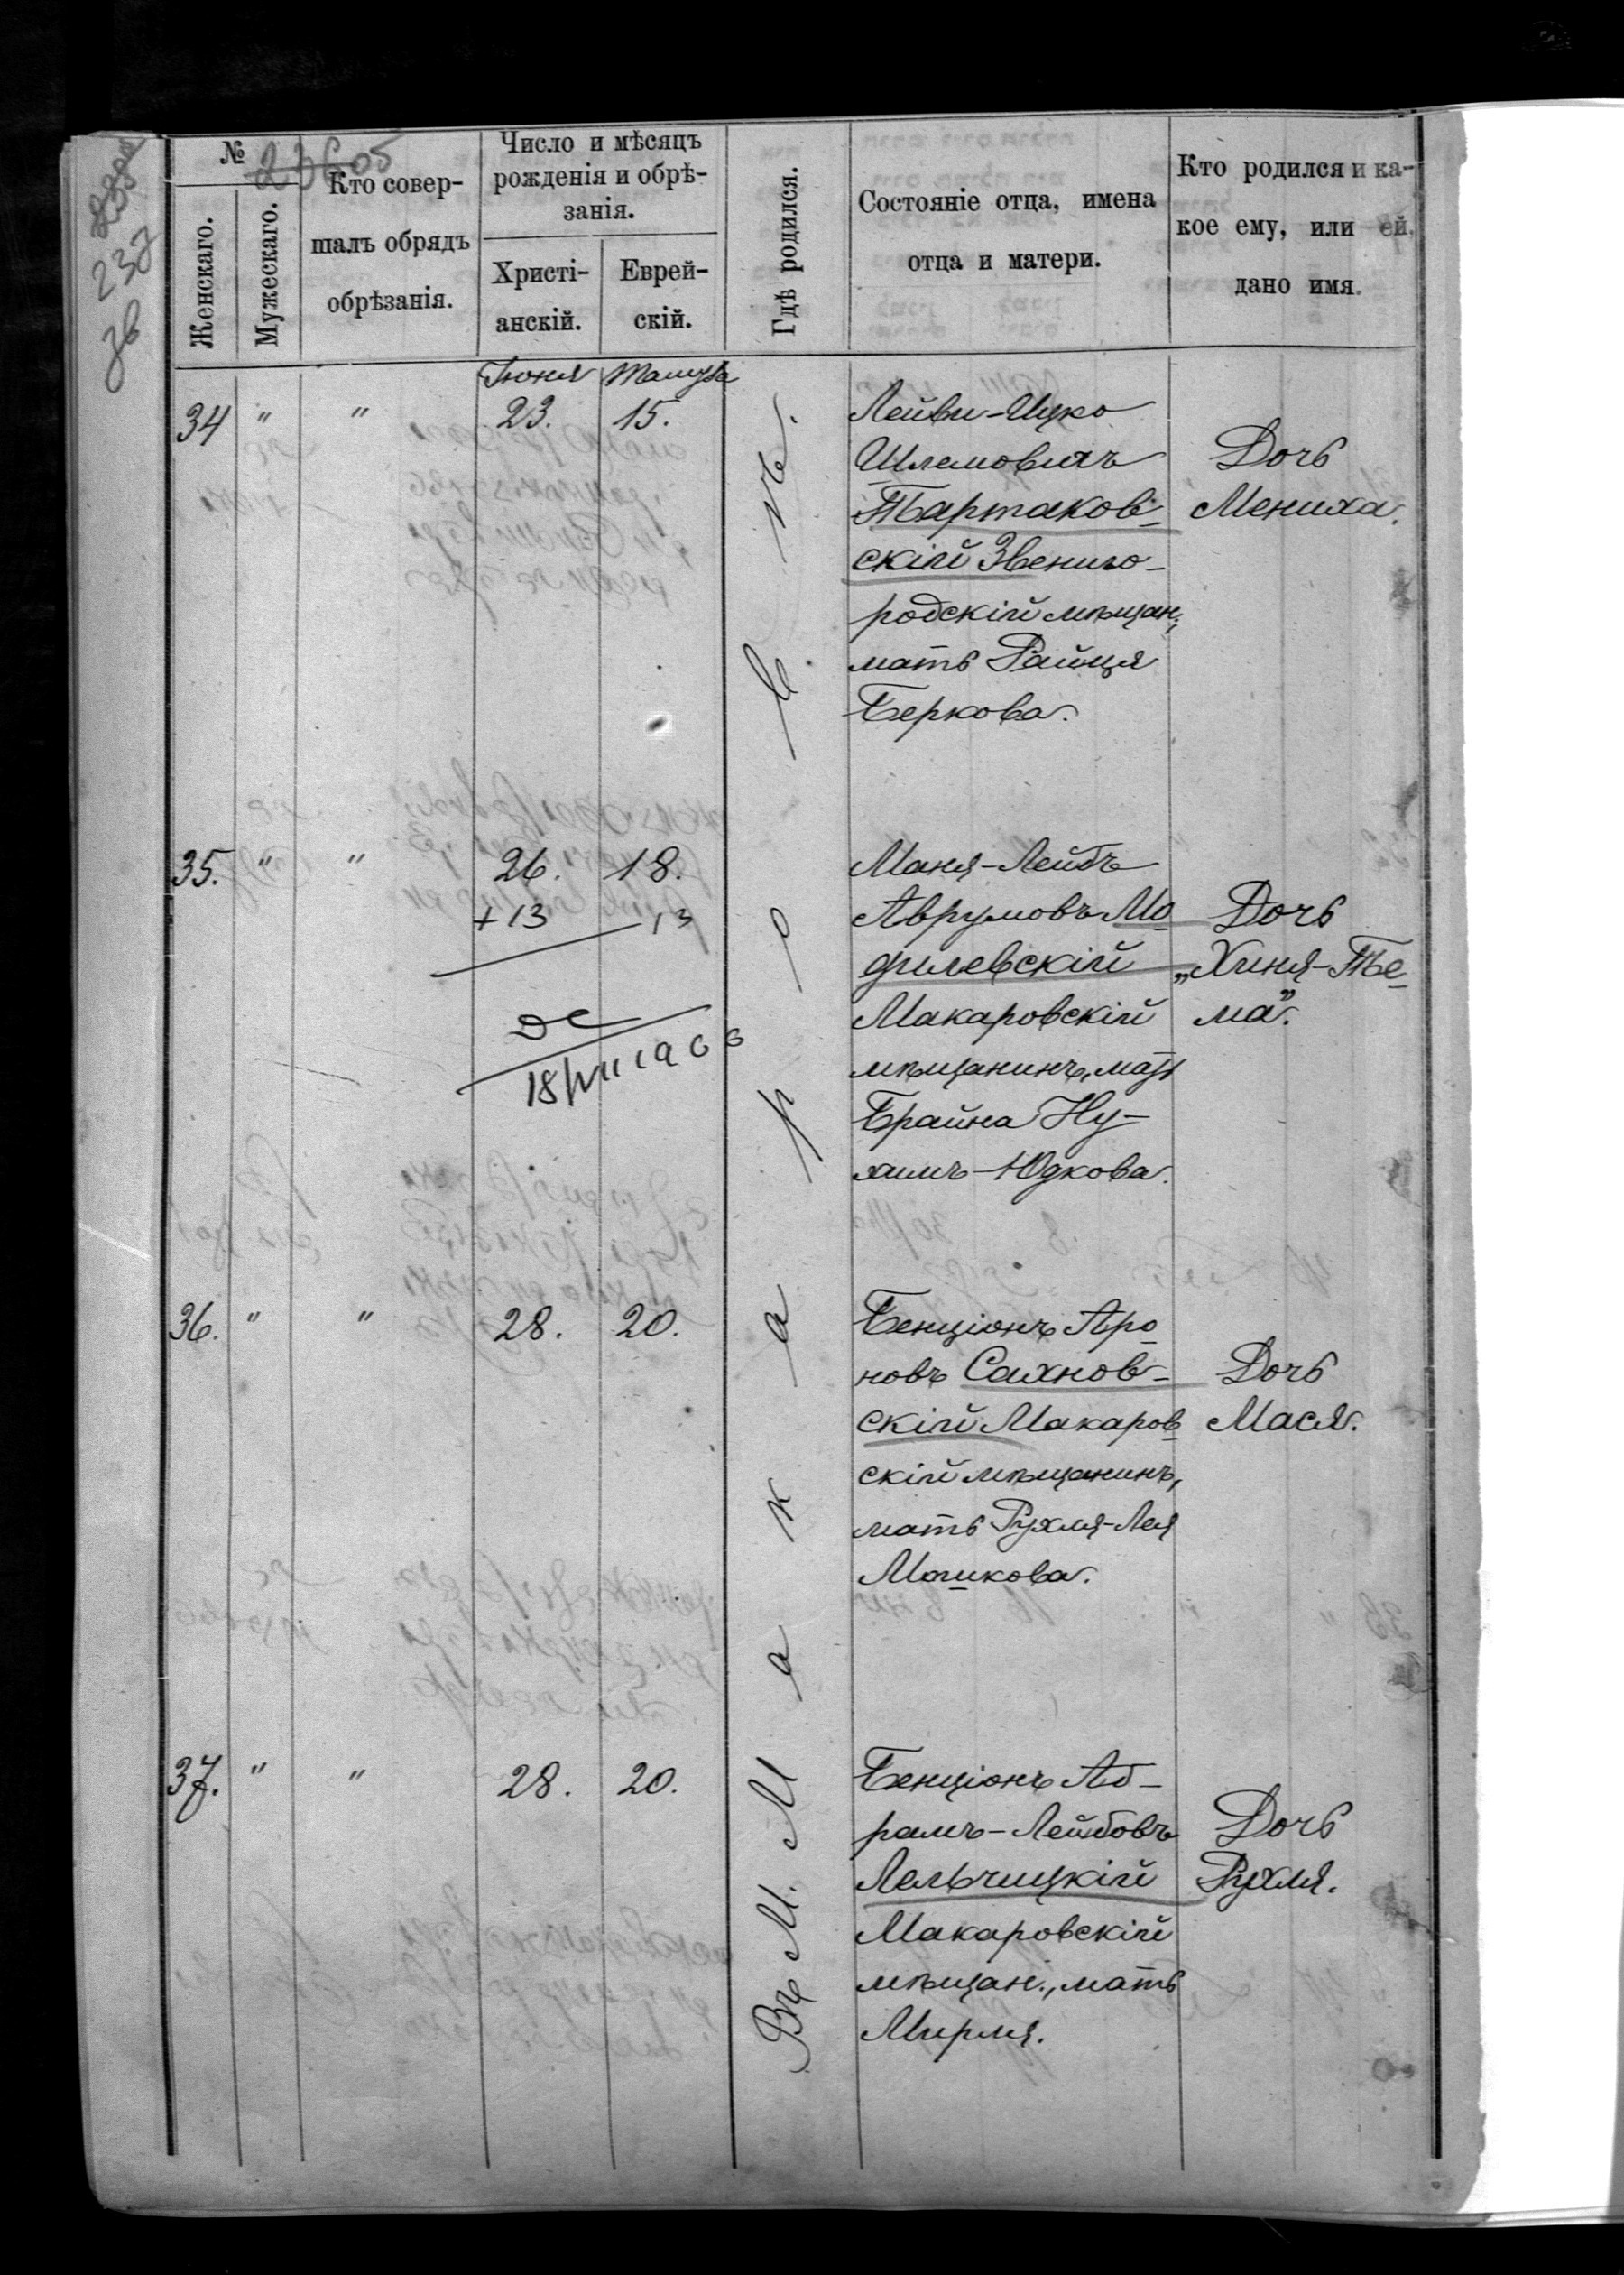 23605
237
36
№
Женскаго.
Мужескаго.
Кто совер-
шалъ обрядъ
обрѣзанія.
Число и мѣсяцъ
рожденія и обрѣ-
занія.
Христі-
анскій.
Еврей-
скій.
Гдѣ родился.
Состояніе отца, имена
отца и матери.
Кто родился и ка-
кое ему, или ей,
дано имя.
Іюня Тамуза
Въ М. Макаровѣ.
34 " " 23. 15.
Лейви-Ицко
Шлемовичъ
Тартаков-
скій Звениго-
родскій мѣщан.,
мать Райця
Беркова.
Дочь
Мениха.
35. " " 26. 18.
+13 13
Маня-Лейбъ
Аврумовъ Мо-
гилевскій
Макаровскій
мѣщанинъ, мать
Брайна Ну-
химъ-Юдкова.
Дочь
„Хиня-Те-
ма".
36. " " 28. 20.
Бенціонъ Аро-
новъ Сахнов-
скій Макаров-
скій мѣщанинъ,
мать Рухля-Лея
Мошкова.
Дочь
Мася.
37. " " 28. 20.
Бенціонъ Аб-
рамъ-Лейбовъ
Лельчицкій
Макаровскій
мѣщан., мать
Мирля.
Дочь
Рухля.